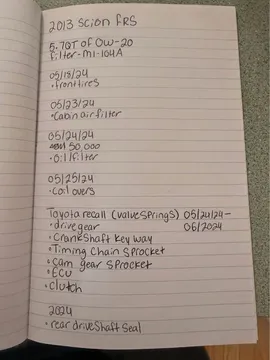 2013 Scion FRS
5.7QT OF OW-20
Filter-M1-104A
05/18/24
• front tires
05/23/24
• Cabin air filter
05/24/24
150,000
• Oil/filter
05/25/24
• Coil overs
Toyota recall (valve springs) 05/24/24-
• drive gear 06/2024
• Crankshaft key way
• Timing Chain Sprocket
• Cam gear Sprocket
• ECU
• Clutch
2024
• rear driveshaft seal